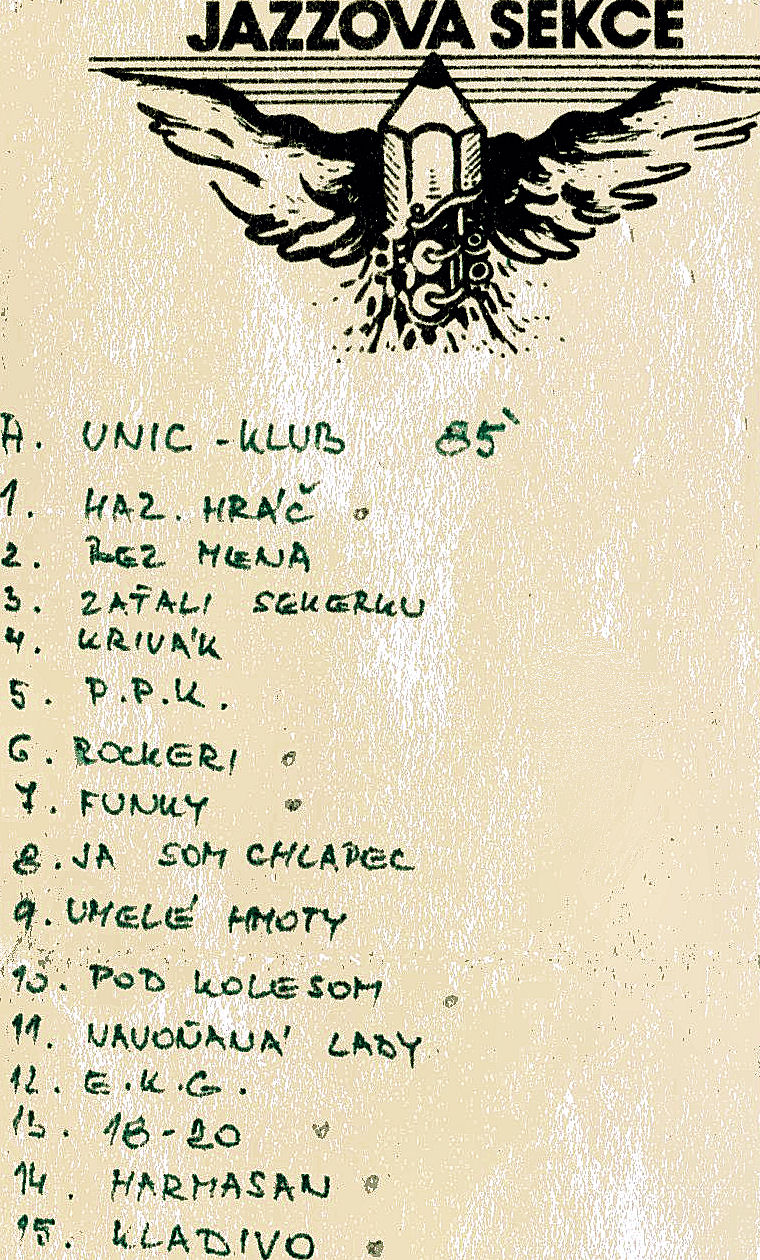 JAZZOVÁ SEKCE
A. UNIC-KLUB 85'
1. HAZ. HRÁČ
2. BEZ MENA
3. ZAŤALI SEKERKU
4. KRIVÁK
5. P.P.K.
6. ROCKERI
7. FUNKY
8. JA SOM CHLAPEC
9. UMELÉ HMOTY
10. POD KOLESOM
11. NAVOŇANÁ LADY
12. E.K.G.
13. 18-20
14. HARMASAN
15. KLADIVO